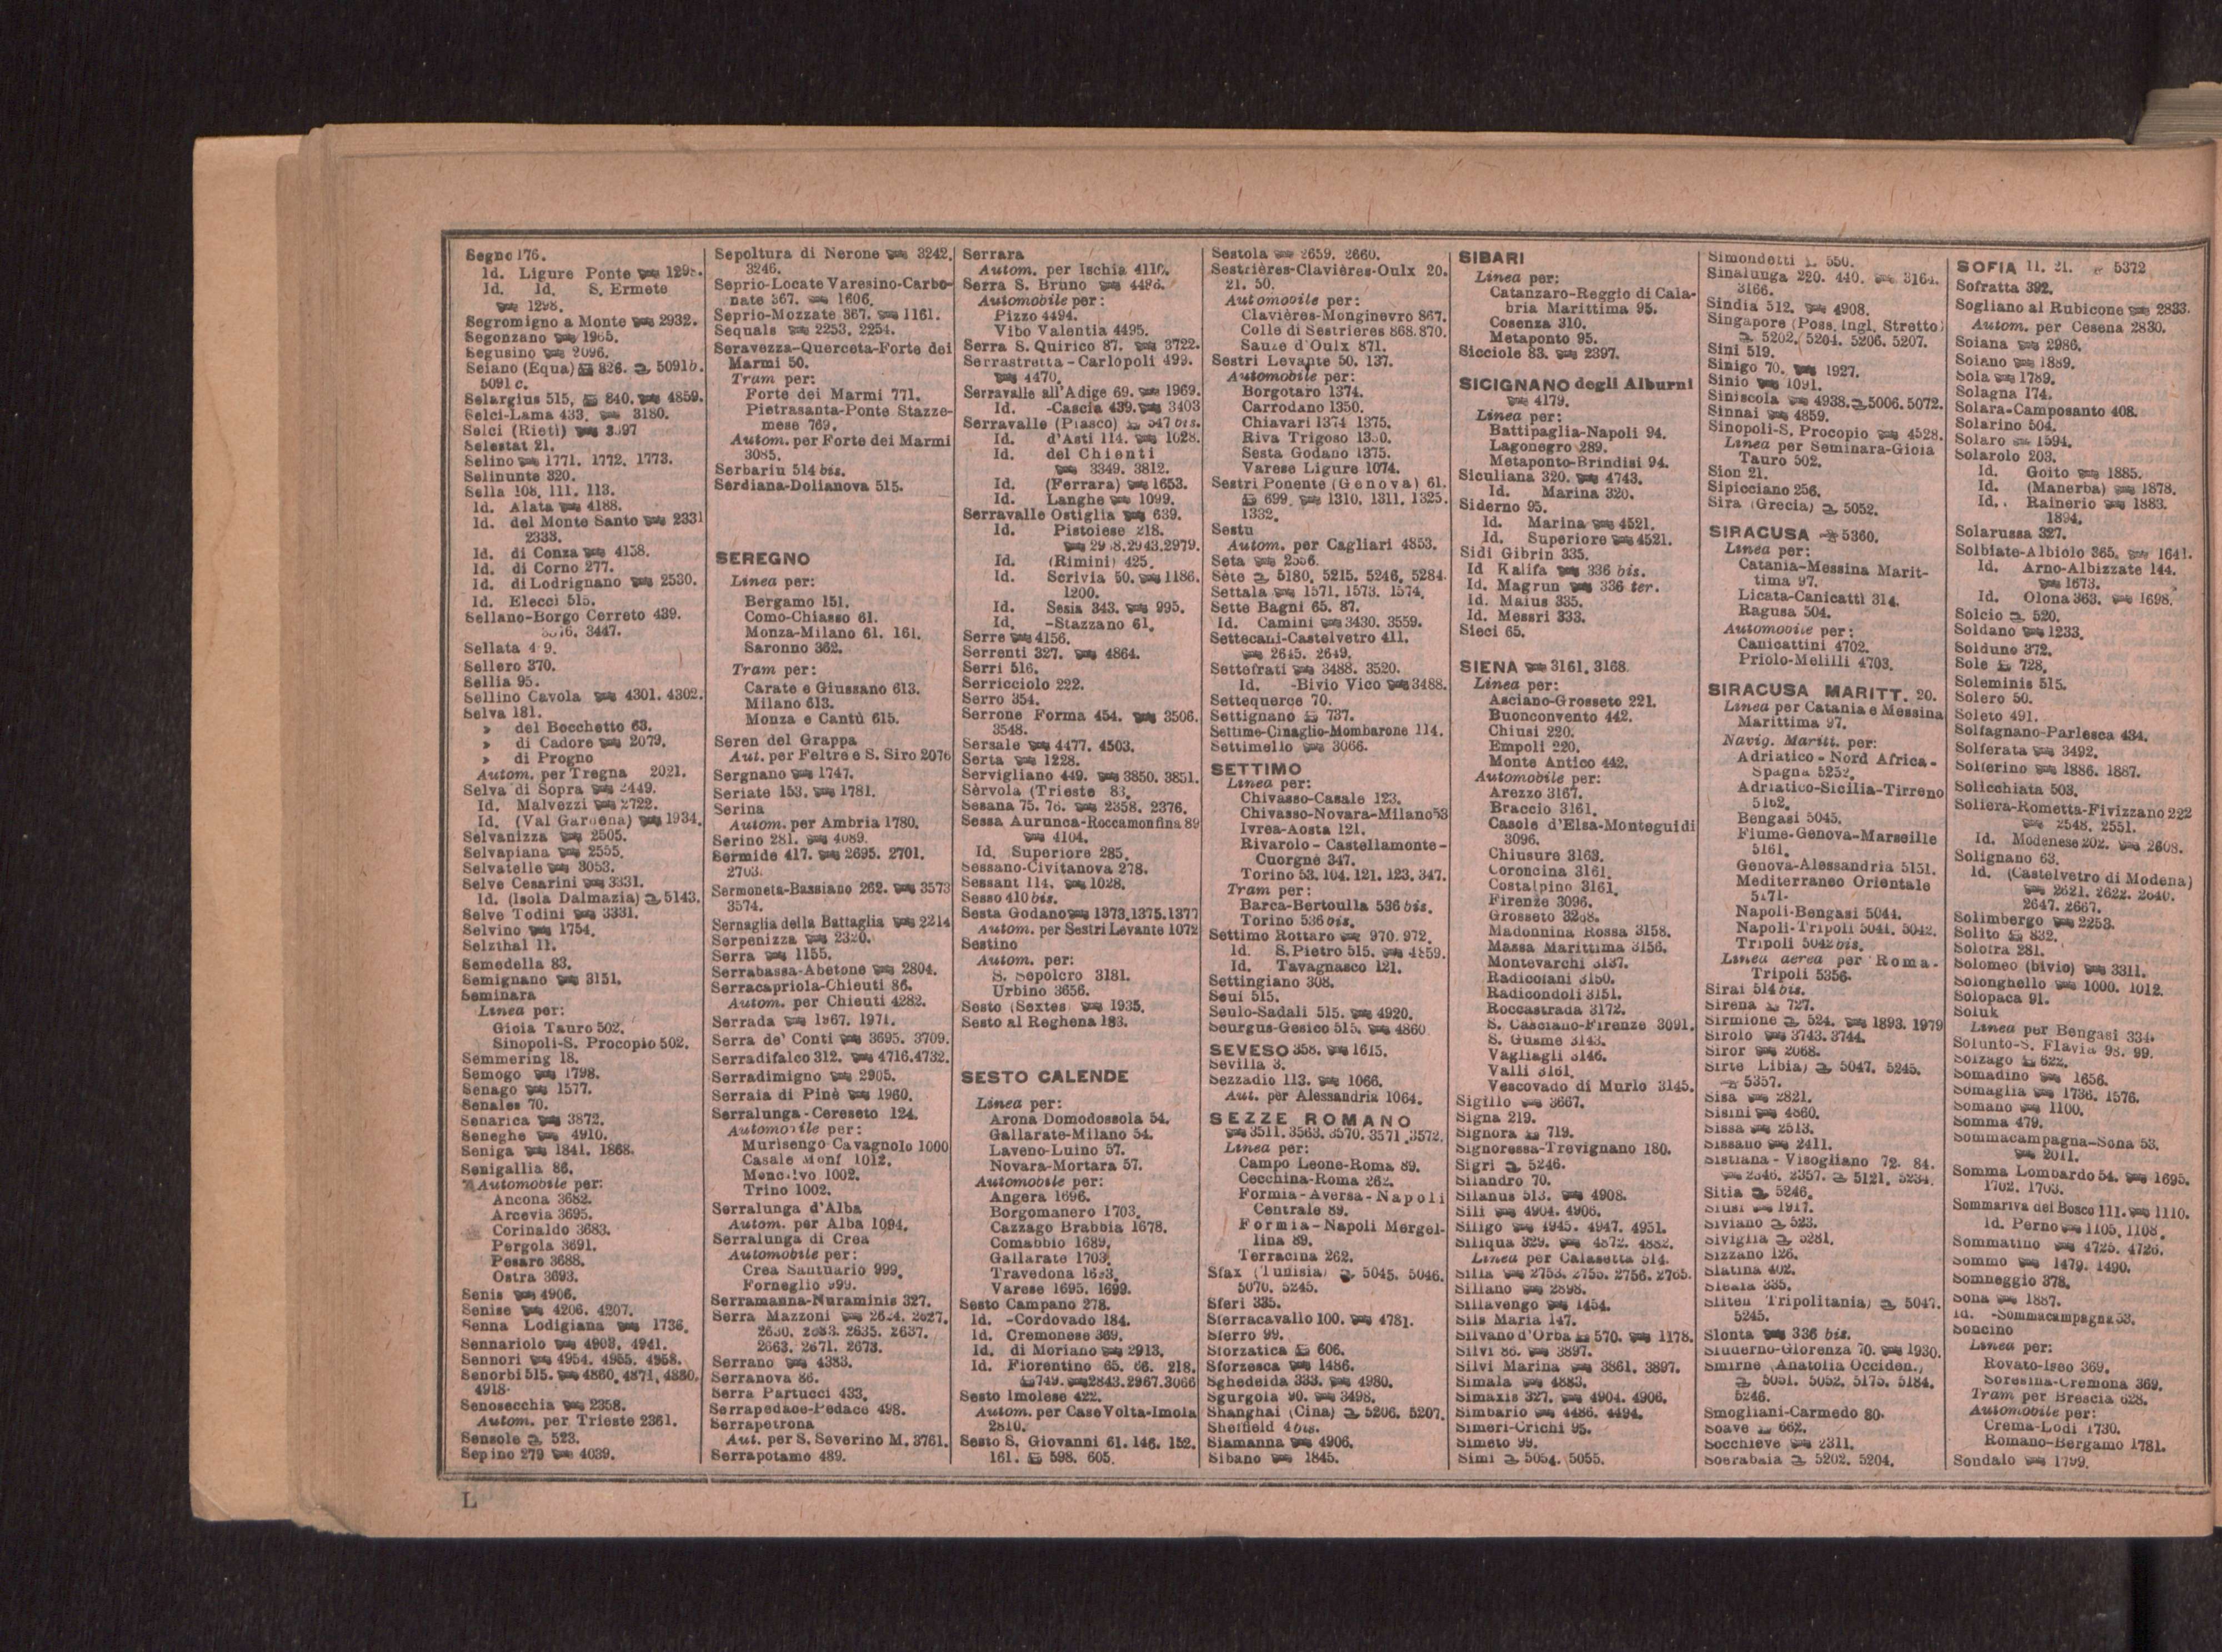 Segno 176.
Id. Ligure Ponte
Id. Id. S. Ermete
1298.
Segromigno a Monte 2932.
Segonzano 1965.
Segusino 2096.
Seiano (Equa) 826. 5091b.
5091 c.
Selargius 515, 840. 4859.
Selci-Lama 433. 3180.
Selci (Rieti)
Selestat 21.
Selino 1771. 1772. 1773.
Selinunte 320.
Sella 108, 111. 113.
Id. Alata 4188.
Id. del Monte Santo 2331
2333.
Id. di Conza 4158.
Id. di Corno 277.
Id. di Lodrignano 2530.
Id. Elecci 515.
Sellano-Borgo Cerreto 439.
3447.
Sellata
Sellero 370.
Sellia 95.
Sellino Cavola 4301. 4302.
Selva 181.
» del Bocchetto 63.
» di Cadore 2079.
» di Progno
Autom. per Tregna 2021.
Selva di Sopra
Id. Malvezzi 2722.
Id. (Val Gardena) 1934.
Selvanizza 2505.
Selvapiana 2555.
Selvatelle 3053.
Selve Cesarini 3331.
Id. (Isola Dalmazia) 5143.
Selve Todini 3331.
Selvino 1754.
Selzthal 11.
Semedella 83.
Semignano 3151.
Seminara
Linea per:
Gioia Tauro 502.
Sinopoli-S. Procopio 502.
Semmering 18.
Semogo 1798.
Senago 1577.
Senales 70.
Senarica 3872.
Seneghe 4910.
Seniga 1841. 1868.
Senigallia 86.
Automobile per:
Ancona 3682.
Arcevia 3695.
Corinaldo 3683.
Pergola 3691.
Pesaro 3688.
Ostra 3693.
Senis 4906.
Senise 4206. 4207.
Senna Lodigiana 1736.
Sennariolo 4903. 4941.
Sennori 4954. 4955. 4958.
Senorbi 515. 4860. 4871. 4880.
4918.
Senosecchia 2358.
Autom. per Trieste 2361.
Sensole 523.
Sepino 279 4039.
Sepoltura di Nerone 3242.
3246.
Seprio-Locate Varesino-Carbo-
nate 367. 1606.
Seprio-Mozzate 367. 1161.
Sequals 2253. 2254.
Seravezza-Querceta-Forte dei
Marmi 50.
Tram per:
Forte dei Marmi 771.
Pietrasanta-Ponte Stazze-
mese 769.
Autom. per Forte dei Marmi
3085.
Serbariu 514 bis.
Serdiana-Dolianova 515.
SEREGNO
Linea per:
Bergamo 151.
Como-Chiasso 61.
Monza-Milano 61. 161.
Saronno 362.
Tram per:
Carate e Giussano 613.
Milano 613.
Monza e Cantù 615.
Seren del Grappa
Aut. per Feltre e S. Siro 2076
Sergnano 1747.
Seriate 153. 1781.
Serina
Autom. per Ambria 1780.
Serino 281. 4089.
Sermide 417. 2695. 2701.
2703.
Sermoneta-Bassiano 262. 3573
3574.
Sernaglia della Battaglia 2214
Serpenizza 2320.
Serra 1155.
Serrabassa-Abetone 2804.
Serracapriola-Chieuti 86.
Autom. per Chieuti 4282.
Serrada 1967. 1971.
Serra de' Conti 3695. 3709.
Serradifalco 312. 4716. 4732.
Serradimigno 2905.
Serraia di Pinè 1960.
Serralunga-Cereseto 124.
Automobile per:
Murisengo Cavagnolo 1000
Casale Monf 1012.
Moncalvo 1002.
Trino 1002.
Serralunga d'Alba
Autom. per Alba 1094.
Serralunga di Crea
Automobile per:
Crea Santuario 999.
Forneglio 999.
Serramanna-Nuraminis 327.
Serra Mazzoni 2627.
2635. 2637.
2663. 2671. 2673.
Serrano 4383.
Serranova 86.
Serra Partucci 433.
Serrapedace-Pedace 498.
Serrapetrona
Aut. per S. Severino M. 3761.
Serrapotamo 489.
Serrara
Autom. per Ischia
Serra S. Bruno 4486.
Automobile per:
Pizzo 4494.
Vibo Valentia 4495.
Serra S. Quirico 87. 3722.
Serrastretta-Carlòpoli 499.
4470.
Serravalle all'Adige 69. 1969.
Id. -Cascia 439. 3403
Serravalle (Piasco) 547 bis.
Id. d'Asti 114. 1028.
Id. del Chienti
3349. 3812.
Id. (Ferrara) 1653.
Id. Langhe 1099.
Serravalle Ostiglia 639.
Id. Pistoiese 218.
2943. 2979.
Id. (Rimini) 425.
Id. Scrivia 50. 1186.
1200.
Id. Sesia 343. 995.
Id. -Stazzano 61.
Serre 4156.
Serrenti 327. 4864.
Serri 516.
Serricciolo 222.
Serro 354.
Serrone Forma 454. 3506.
3548.
Sersale 4477. 4503.
Serta 1228.
Servigliano 449. 3850. 3851.
Sèrvola (Trieste 83.
Sesana 75. 76. 2358. 2376.
Sessa Aurunca-Roccamonfina 89
4104.
Id. Superiore 285.
Sessano-Civitanova 278.
Sessant 114. 1028.
Sesso 410 bis.
Sesta Godano 1373. 1375. 1377
Autom. per Sestri Levante 1072
Sestino
Autom. per:
S. Sepolcro 3181.
Urbino 3656.
Sesto (Sextes) 1935.
Sesto al Reghena 183.
SESTO CALENDE
Linea per:
Arona Domodossola 54.
Gallarate-Milano 54.
Laveno-Luino 57.
Novara-Mortara 57.
Automobile per:
Angera 1696.
Borgomanero 1703.
Cazzago Brabbia 1678.
Comabbio 1689.
Gallarate 1703.
Travedona
Varese 1695. 1699.
Sesto Campano 278.
Id. -Cordovado 184.
Id. Cremonese 369.
Id. di Moriano 2913.
Id. Fiorentino 65. 66. 218.
749. 2843. 2967. 3066
Sesto Imolese 422.
Autom. per Case Volta-Imola
2810.
Sesto S. Giovanni 61. 146. 152.
161. 598. 605.
Sestola 2659. 2660.
Sestrières-Clavières-Oulx 20.
21. 50.
Automobile per:
Clavières-Monginevro 867.
Colle di Sestrieres 868. 870.
Sauze d'Oulx 871.
Sestri Levante 50. 137.
Automobile per:
Borgotaro 1374.
Carrodano 1350.
Chiavari 1374 1375.
Riva Trigoso
Sesta Godano 1375.
Varese Ligure 1074.
Sestri Ponente (Genova) 61.
699. 1310. 1311. 1325.
1332.
Sestu
Autom. per Cagliari 4853.
Seta
Sète 5180. 5215. 5246. 5284.
Settala 1571. 1573. 1574.
Sette Bagni 65. 87.
Id. Camini 3430. 3559.
Settecani-Castelvetro 411.
2645. 2649.
Settefrati 3488. 3520.
Id. -Bivio Vico 3488.
Settequerce 70.
Settignano 737.
Settime-Cinaglio-Mombarone 114.
Settimello 3066.
SETTIMO
Linea per:
Chivasso-Casale 123.
Chivasso-Novara-Milano 53
Ivrea-Aosta 121.
Rivarolo - Castellamonte-
Cuorgnè 347.
Torino 53. 104. 121. 123. 347.
Tram per:
Barca-Bertoulla 536 bis.
Torino 536 bis.
Settimo Rottaro 970. 972.
Id. S. Pietro 515. 4859.
Id. Tavagnasco 121.
Settingiano 308.
Seui 515.
Seulo-Sadali 515. 4920.
Seurgus-Gesico 515. 4860
SEVESO 358. 1615.
Sevilla 3.
Sezzadio 113. 1066.
Aut. per Alessandria 1064.
SEZZE ROMANO
3511. 3563. 3570. 3571. 3572.
Linea per:
Campo Leone-Roma 89.
Cecchina-Roma 262.
Formia-Aversa-Napoli
Centrale 89.
Formia-Napoli Mergel-
lina 89.
Terracina 262.
Sfax (Tunisia) 5045. 5046.
5070. 5245.
Sferi 335.
Sferracavallo 100. 4781.
Sferro 99.
Sforzatica 606.
Sforzesca 1486.
Sghedeida 333. 4980.
Sgurgola 90. 3498.
Shanghai (Cina) 5206. 5207.
Sheffield 4 bis.
Siamanna 4906.
Sibano 1845.
SIBARI
Linea per:
Catanzaro-Reggio di Cala-
bria Marittima 95.
Cosenza 310.
Metaponto 95.
Sicciole 83. 2397.
SICIGNANO degli Alburni
4179.
Linea per:
Battipaglia-Napoli 94.
Lagonegro 289.
Metaponto-Brindisi 94.
Siculiana 320. 4743.
Id. Marina 320.
Siderno 95.
Id. Marina 4521.
Id. Superiore 4521.
Sidi Gibrin 335.
Id Kalifa 336 bis.
Id. Magrun 336 ter.
Id. Maius 335.
Id. Messri 333.
Sieci 65.
SIENA 3161. 3168.
Linea per:
Asciano-Grosseto 221.
Buonconvento 442.
Chiusi 220.
Empoli 220.
Monte Antico 442.
Automobile per:
Arezzo 3167.
Braccio 3161.
Casole d'Elsa-Monteguidi
3096.
Chiusure 3163.
Coroncina 3161.
Costalpino 3161.
Firenze 3096.
Grosseto
Madonnina Rossa 3158.
Massa Marittima 3156.
Montevarchi 3137.
Radicofani 3150.
Radicondoli 3151.
Roccastrada 3172.
S. Casciano-Firenze 3091.
S. Gusme 3143.
Vagliagli 3146.
Valli 3161.
Vescovado di Murlo 3145.
Sigillo 3667.
Signa 219.
Signora 719.
Signoressa-Trevignano 180.
Sigri 5246.
Silandro 70.
Silanus 513. 4908.
Sili 4904. 4906.
Siligo 4945. 4947. 4951.
Siliqua 329. 4872. 4882.
Linea per Calasetta 514.
Silla 2753. 2755. 2756. 2765.
Sillano 2898.
Sillavengo 1454.
Sils Maria 147.
Silvano d'Orba 570. 1178.
Silvi 86. 3897.
Silvi Marina 3861. 3897.
Simala 4883.
Simaxis 327. 4904. 4906.
Simbario 4486. 4494.
Simeri-Crichi 95.
Simeto 99.
Simi 5054. 5055.
Simondetti 550.
Sinalunga 220. 440. 3164.
3166.
Sindia 512. 4908.
Singapore (Poss. ingl. Stretto)
5202. 5204. 5206. 5207.
Sini 519.
Sinigo 70. 1927.
Sinio 1091.
Siniscola 4938. 5006. 5072.
Sinnai 4859.
Sinopoli-S. Procopio 4528.
Linea per Seminara-Gioia
Tauro 502.
Sion 21.
Sipicciano 256.
Sira (Grecia) 5052.
SIRACUSA 5360.
Linea per:
Catania-Messina Marit-
tima 97.
Licata-Canicattì 314.
Ragusa 504.
Automobile per:
Canicattini 4702.
Priolo-Melilli 4703.
SIRACUSA MARITT. 20.
Linea per Catania e Messina
Marittima 97.
Navig. Maritt. per:
Adriatico - Nord Africa-
Spagna 5252.
Adriatico-Sicilia-Tirreno
5162.
Bengasi 5045.
Fiume-Genova-Marseille
5161.
Genova-Alessandria 5151.
Mediterraneo Orientale
5171.
Napoli-Bengasi 5044.
Napoli-Tripoli 5041. 5042.
Tripoli 5042 bis.
Linea aerea per Roma-
Tripoli 5356.
Sirai 514 bis.
Sirena 727.
Sirmione 524. 1893. 1979
Sirolo 3743. 3744.
Siror 2068.
Sirte Libia) 5047. 5245.
5357.
Sisa 2821.
Sisini 4860.
Sissa 2513.
Sissano 2411.
Sistiana-Visogliano 72. 84.
2346. 2357. 5121. 5234.
Sitia 5246.
Siusi 1917.
Siviano 523.
Siviglia 5281.
Sizzano 126.
Slatina 402.
335.
Sliten Tripolitania) 5047.
5245.
Slonta 336 bis.
Sluderno-Glorenza 70. 1930.
Smirne (Anatolia Occiden.)
5051. 5052. 5175. 5184.
5246.
Smogliani-Carmedo 80.
Soave 662.
Socchieve 2311.
Soerabaia 5202. 5204.
SOFIA 11. 21. 5372
Sofratta 392.
Sogliano al Rubicone 2833.
Autom. per Cesena 2830.
Soiana 2986.
Soiano 1889.
Sola 1789.
Solagna 174.
Solara-Camposanto 408.
Solarino 504.
Solaro 1594.
Solarolo 203.
Id. Goito 1885.
Id. (Manerba) 1878.
Id. Rainerio 1883.
1894.
Solarussa 327.
Solbiate-Albiolo 365. 1641.
Id. Arno-Albizzate 144.
1673.
Id. Olona 363. 1698.
Solcio 520.
Soldano 1233.
Solduno 372.
Sole 728.
Soleminis 515.
Solero 50.
Soleto 491.
Solfagnano-Parlesca 434.
Solferata 3492.
Solferino 1886. 1887.
Solicchiata 503.
Soliera-Rometta-Fivizzano 222
2548. 2551.
Id. Modenese 202. 2608.
Solignano 63.
Id. (Castelvetro di Modena)
2621. 2622. 2640.
2647. 2667.
Solimbergo 2253.
Solito 832.
Solofra 281.
Solomeo (bivio) 3311.
Solonghello 1000. 1012.
Solopaca 91.
Soluk
Linea per Bengasi 334.
Solunto-S. Flavia 98. 99.
Solzago 622.
Somadino 1656.
Somaglia 1736. 1576.
Somano 1100.
Somma 479.
Sommacampagna-Sona 53.
2011.
Somma Lombardo 54. 1695.
1702. 1703.
Sommariva del Bosco 111. 1110.
Id. Perno 1105. 1108.
Sommatino 4725. 4726.
Sommo 1479. 1490.
Somneggio 378.
Sona 1887.
Id. -Sommacampagna 53.
Soncino
Linea per:
Rovato-Iseo 369.
Soresina-Cremona 369.
Tram per Brescia 628.
Automobile per:
Crema-Lodi 1730.
Romano-Bergamo 1781.
Sondalo 1799.
L